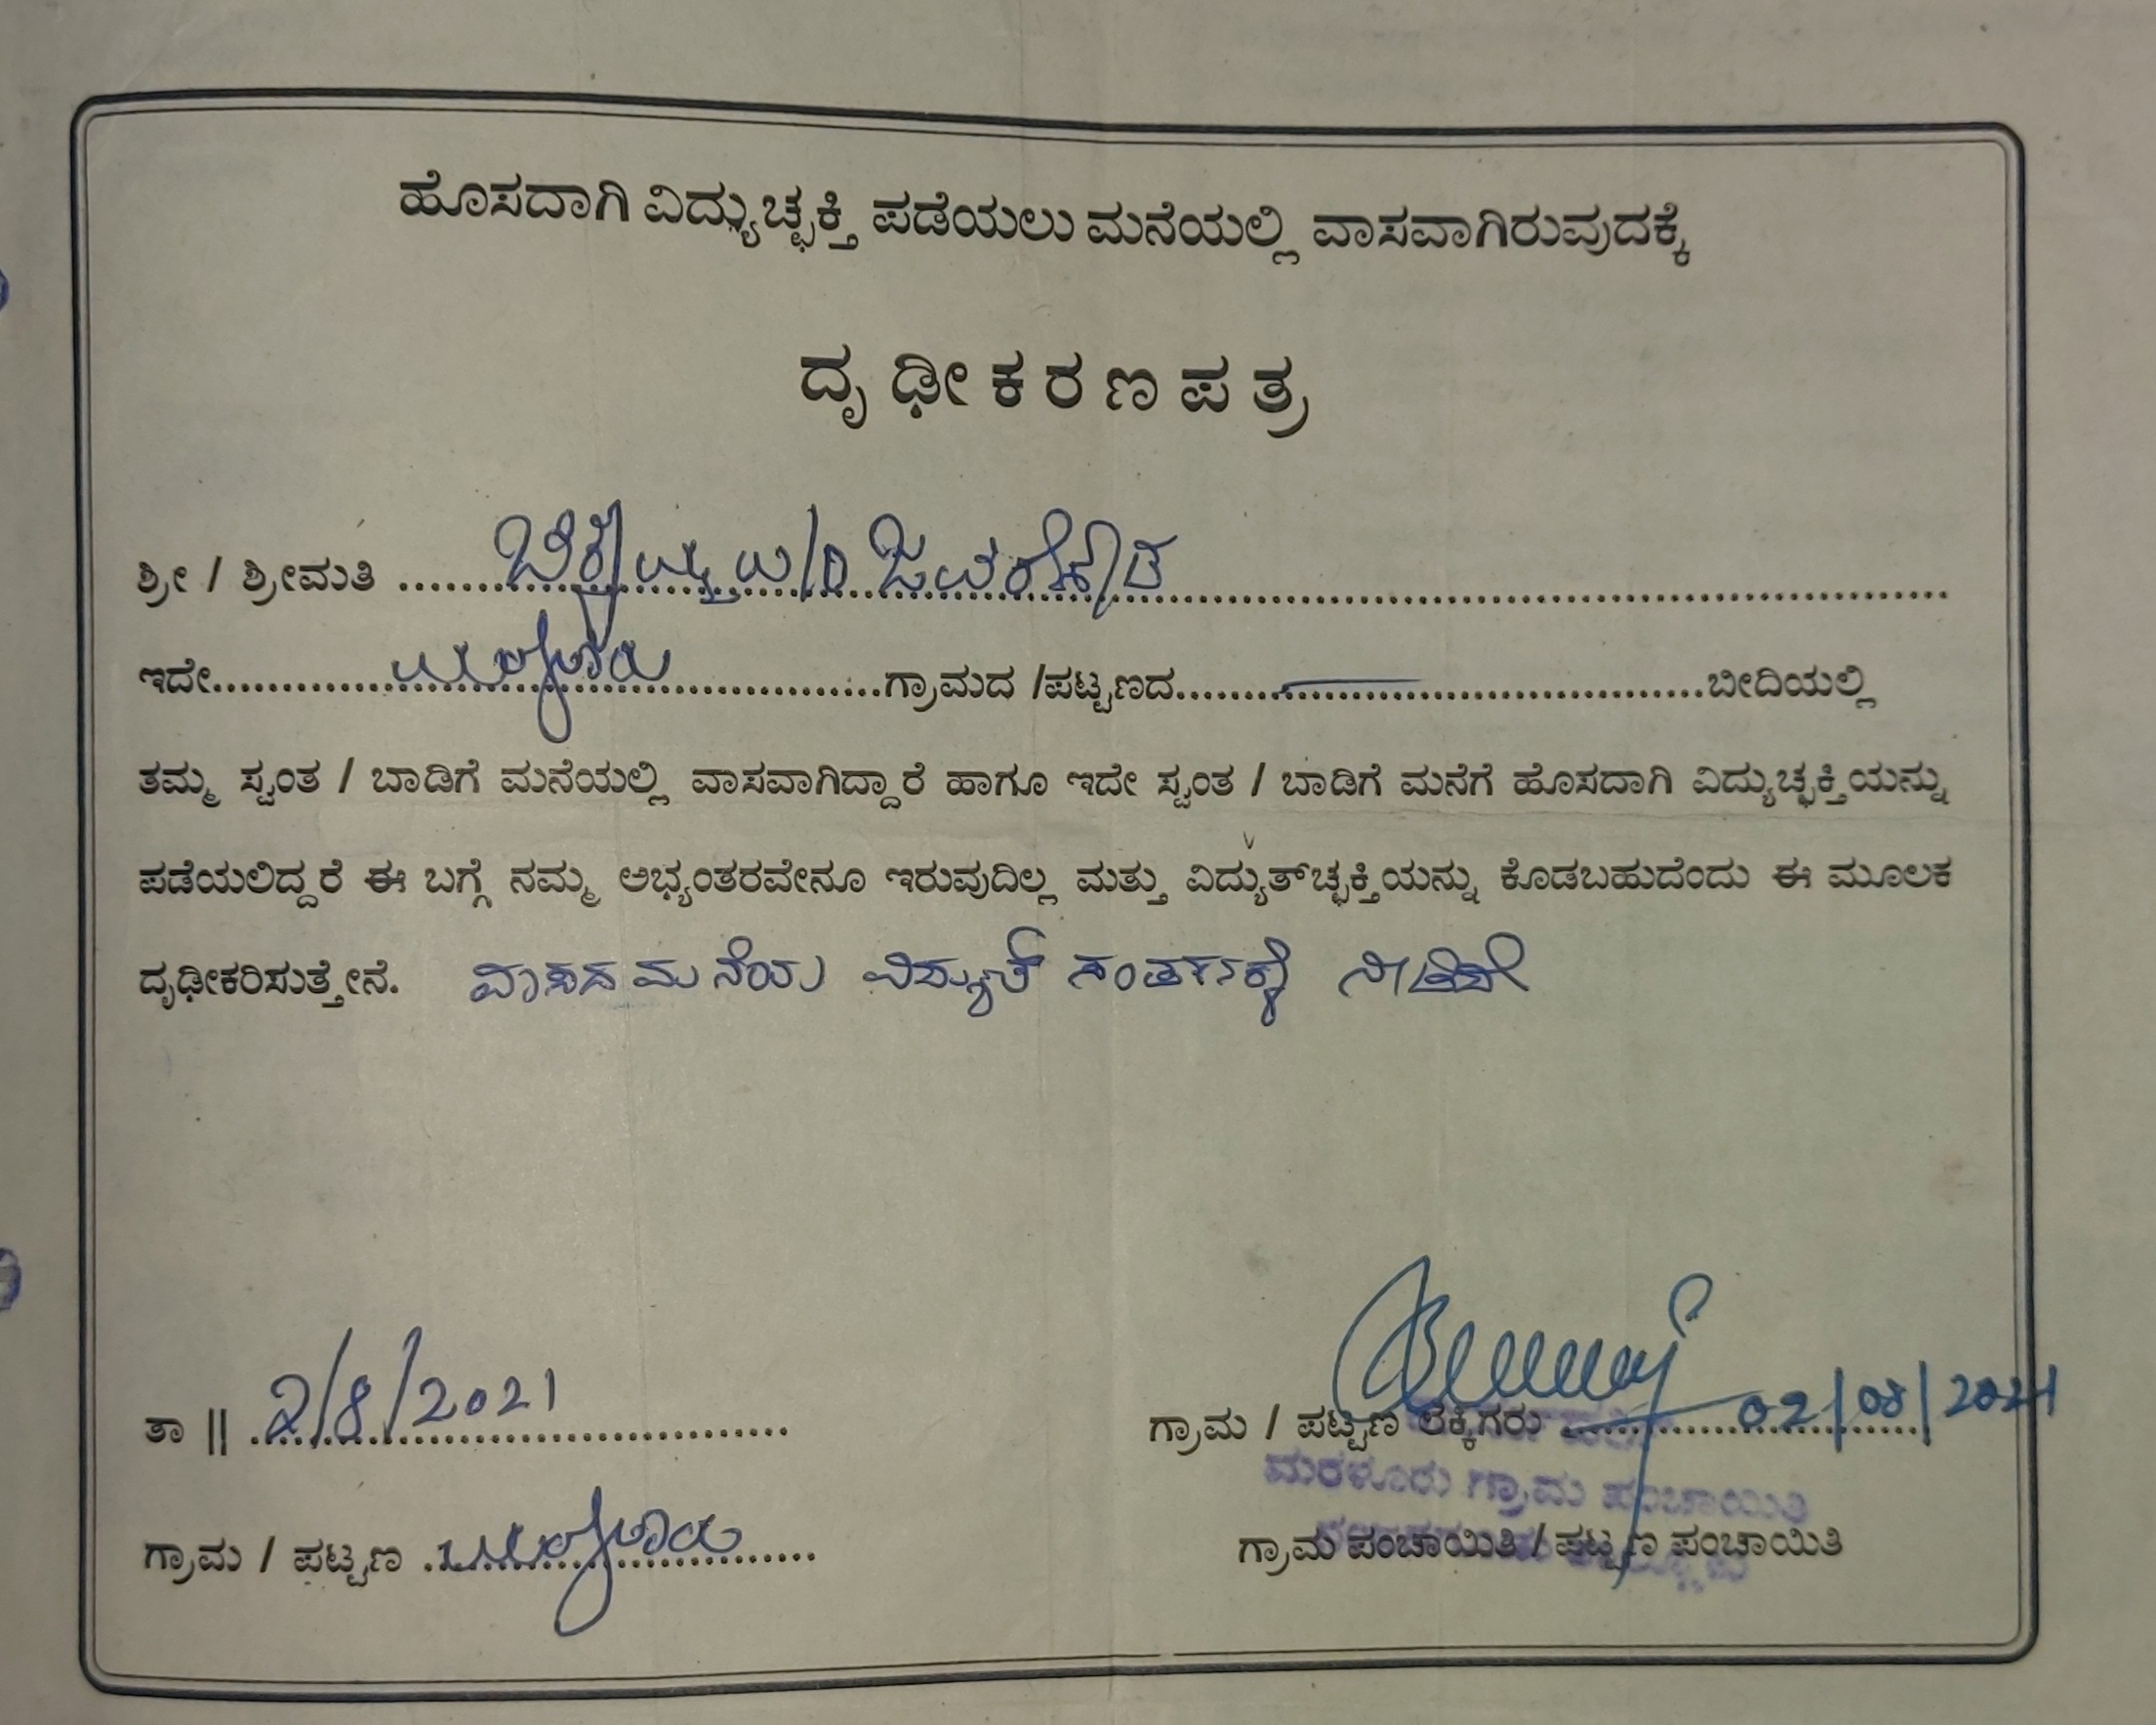 ಹೊಸದಾಗಿ ವಿದ್ಯುಚ್ಛಕ್ತಿ ಪಡೆಯಲು ಮನೆಯಲ್ಲಿ ವಾಸವಾಗಿರುವುದಕ್ಕೆ
ದೃಢೀಕರಣಪತ್ರ
ಶ್ರೀ / ಶ್ರೀಮತಿ ..........
ಇದೇ..........ಗ್ರಾಮದ /ಪಟ್ಟಣದ..........ಬೀದಿಯಲ್ಲಿ
ತಮ್ಮ ಸ್ವಂತ / ಬಾಡಿಗೆ ಮನೆಯಲ್ಲಿ ವಾಸವಾಗಿದ್ದಾರೆ ಹಾಗೂ ಇದೇ ಸ್ವಂತ / ಬಾಡಿಗೆ ಮನೆಗೆ ಹೊಸದಾಗಿ ವಿದ್ಯುಚ್ಛಕ್ತಿಯನ್ನು
ಪಡೆಯಲಿದ್ದರೆ ಈ ಬಗ್ಗೆ ನಮ್ಮ ಅಭ್ಯಂತರವೇನೂ ಇರುವುದಿಲ್ಲ ಮತ್ತು ವಿದ್ಯುತ್‌ಚ್ಛಕ್ತಿಯನ್ನು ಕೊಡಬಹುದೆಂದು ಈ ಮೂಲಕ
ದೃಢೀಕರಿಸುತ್ತೇನೆ. ವಾಸದ ಮನೆಯ ವಿದ್ಯುತ್ ಸಂಪರ್ಕಕ್ಕೆ
ತಾ || 2/8/2021
ಗ್ರಾಮ / ಪಟ್ಟಣ ಲೆಕ್ಕಿಗರು 02/08/2021
ಮರಳೂರು ಗ್ರಾಮ ಪಂಚಾಯಿತಿ
ಗ್ರಾಮ / ಪಟ್ಟಣ ..........
ಗ್ರಾಮ ಪಂಚಾಯಿತಿ / ಪಟ್ಟಣ ಪಂಚಾಯಿತಿ